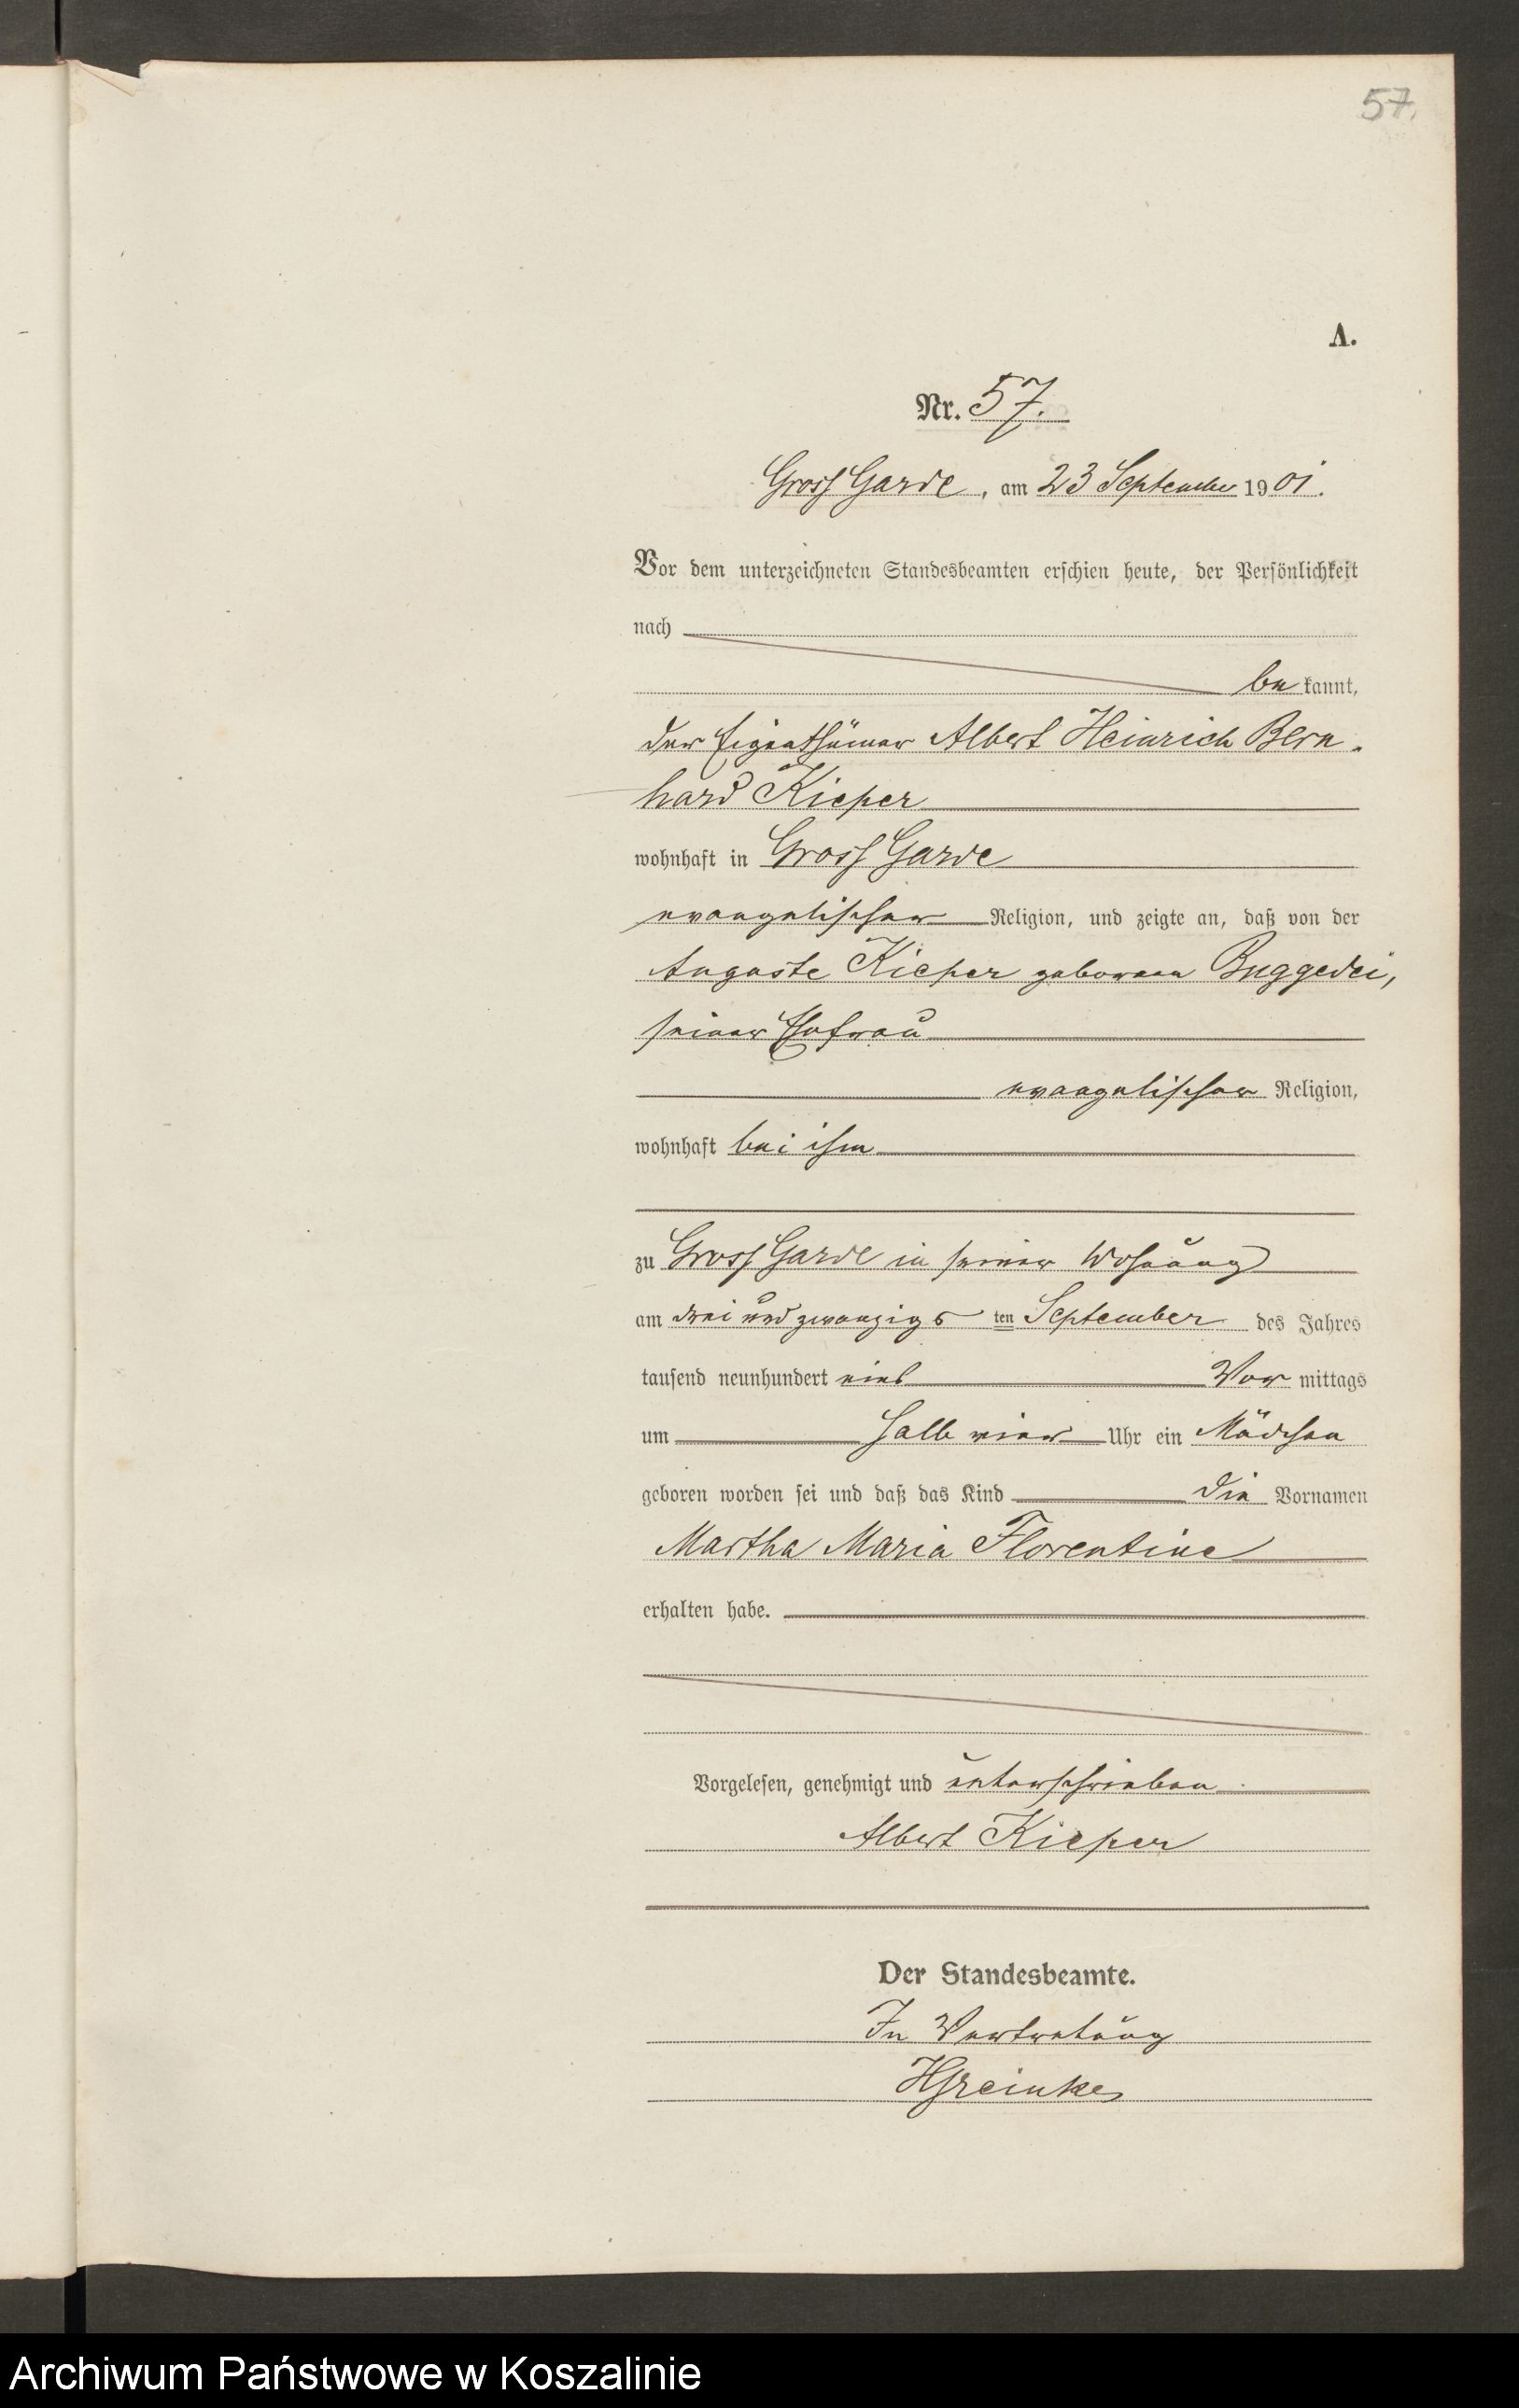 57.
A.
Nr. 57.
Gross Garde, am 23 September 1901.
Vor dem unterzeichneten Standesbeamten erschien heute, der Persönlichkeit
nach
be kannt,
der Eigenthümer Albert Heinrich Bern-
hard Kieper
wohnhaft in Gross Garde
evangelischer Religion, und zeigte an, daß von der
Auguste Kieper geborenen Buggedei,
seiner Ehefrau
evangelischer Religion,
wohnhaft bei ihm
zu Gross Garde in seiner Wohnung
am drei und zwanzigs ten September des Jahres
tausend neunhundert eins Vor mittags
um halb vier Uhr ein Mädchen
geboren worden sei und daß das Kind die Vornamen
Martha Maria Florentine
erhalten habe.
Vorgelesen, genehmigt und unterschrieben
Albert Kieper
Der Standesbeamte.
In Vertretung
Archiwum Państwowe w Koszalinie